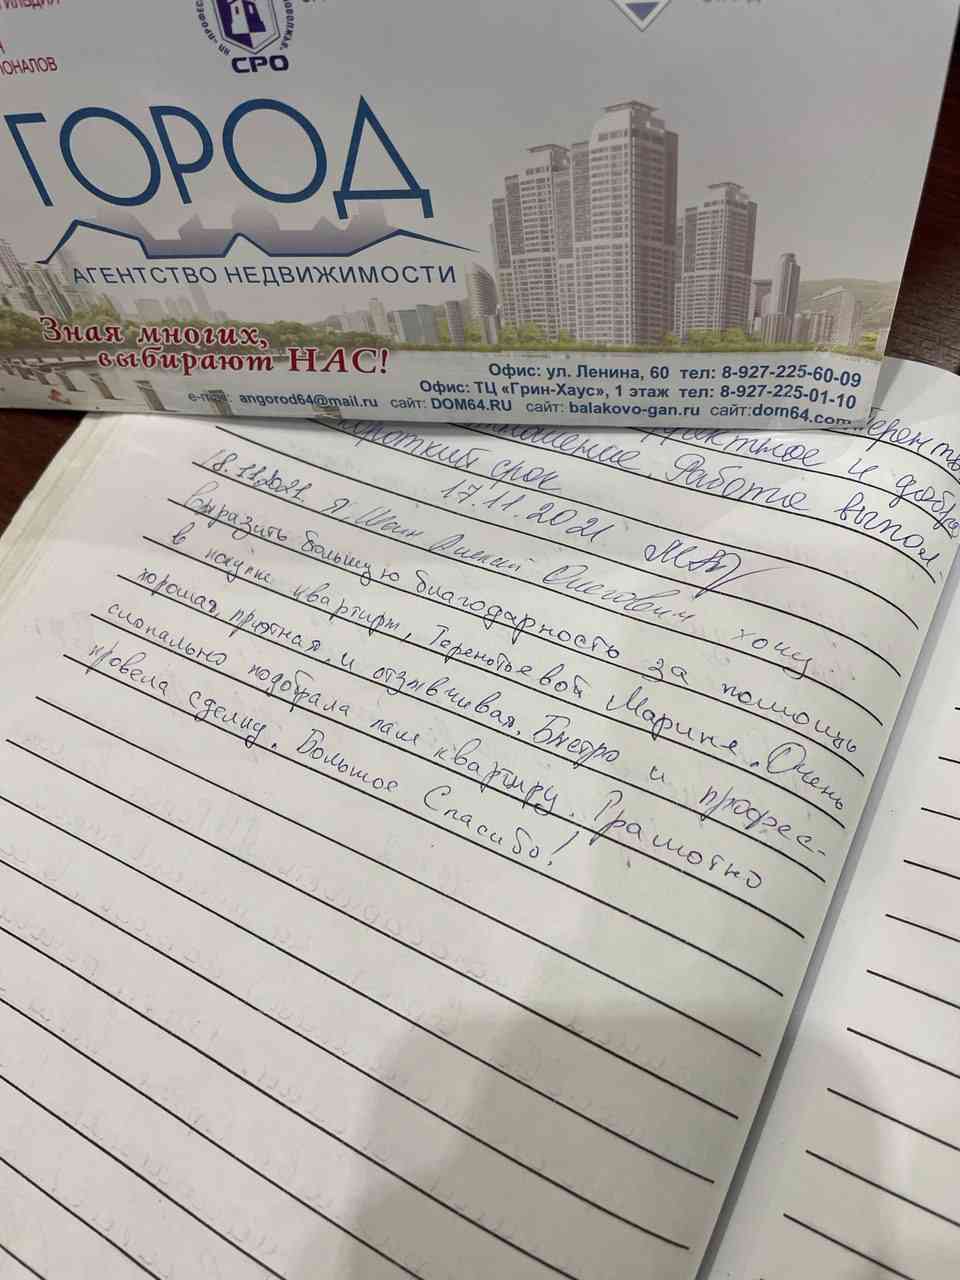 ОНАЛОВ
СРО
ГОРОД
АГЕНТСТВО НЕДВИЖИМОСТИ
Зная многих,
выбирают НАС!
Офис: ул. Ленина, 60 тел: 8-927-225-60-09
Офис: ТЦ «Грин-Хаус», 1 этаж тел: 8-927-225-01-10
e-mail: angorod64@mail.ru сайт: DOM64.RU сайт: balakovo-gan.ru сайт:dom64.com
и добро
отношение. Работа выпол
короткий срок
17.11.2021.
18.11.2021. Я, Шеин Алексей Олегович хочу
выразить большую благодарность за помощь
в покупке квартиры, Терентьевой Марине. Очень
хорошая, приятная и отзывчивая. Быстро и профес-
сионально подобрала нам квартиру. Грамотно
провела сделку. Большое Спасибо!